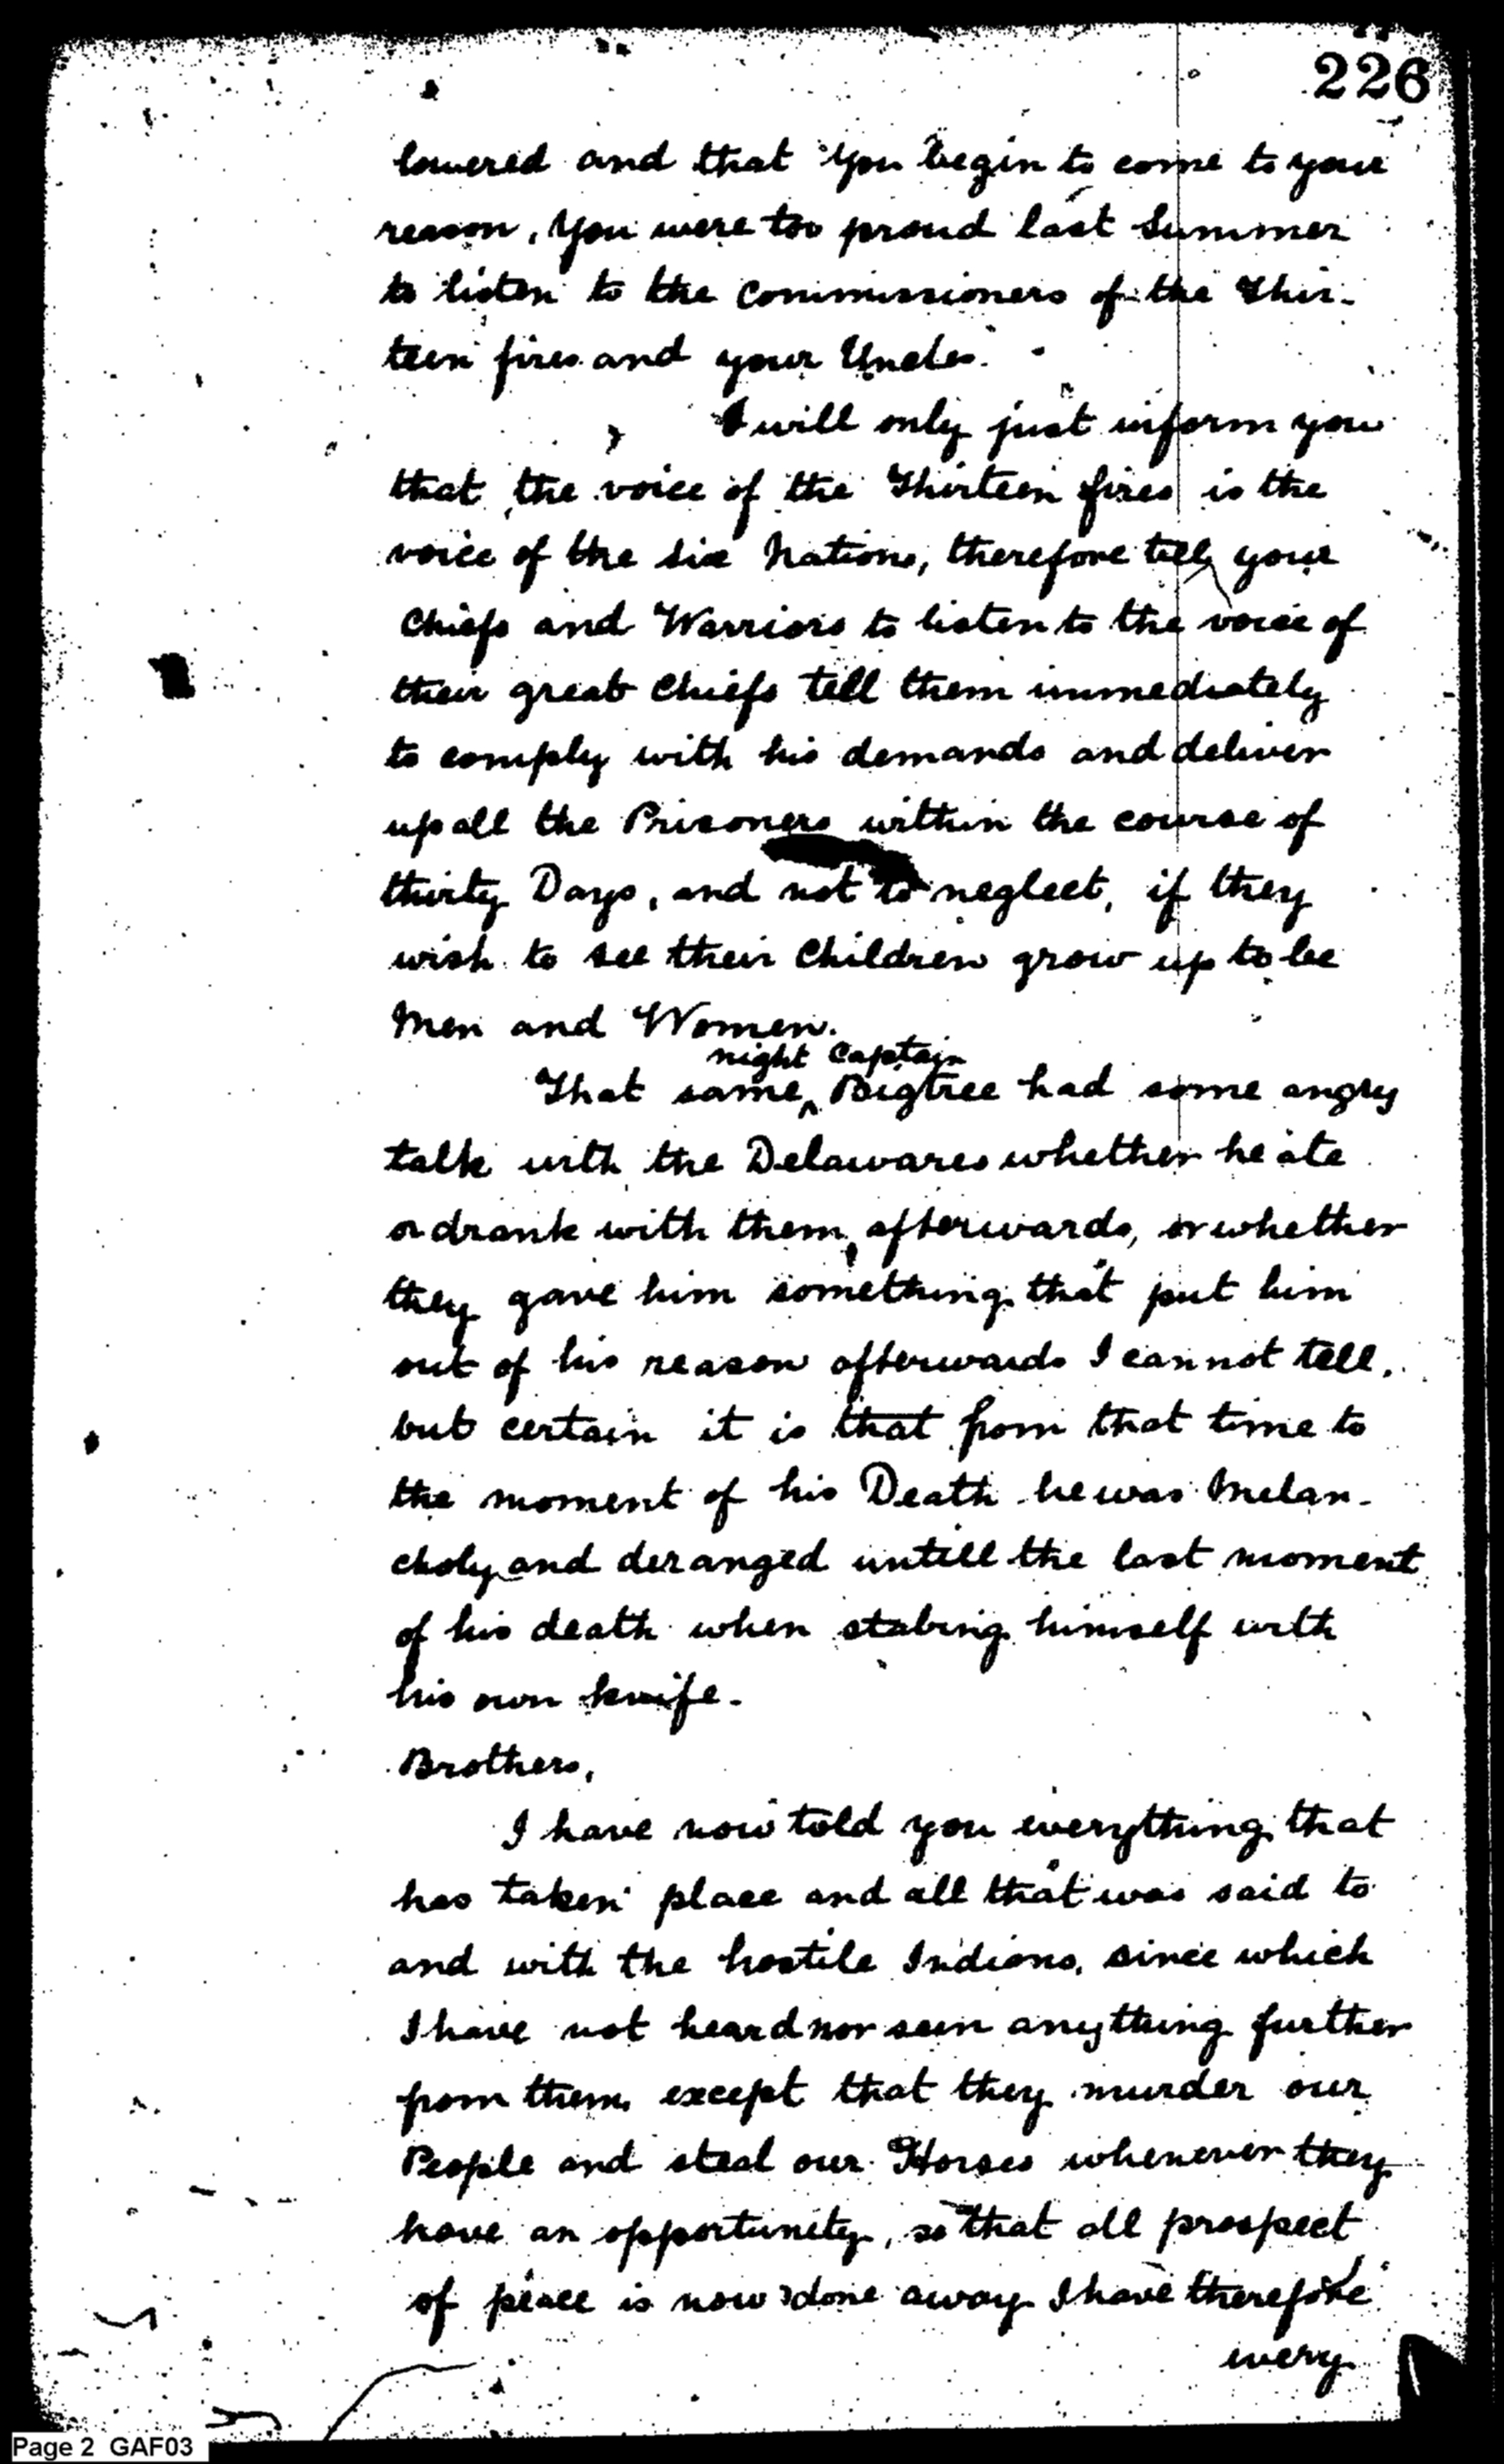 226
lowered and that you begin to come to your
reason, You were too proud last Summer
to listen to the Commissioners of the Thir-
teen fires and your Uncles.
I will only just inform you
that the voice of the Thirteen fires is the
voice of the six Nations, therefore tell your
Chiefs and Warriors to listen to the voice of
their great Chiefs tell them immediately
to comply with his demands and deliver
up all the Prisoners within the course of
thirty Days, and not to neglect, if they
wish to see their Children grow up to be
Men and Women.
night Captain
That same ^ Bigtree had some angry
talk with the Delawares whether he ate
or drank with them, afterwards, or whether
they gave him something that put him
out of his reason afterwards I cannot tell.
but certain it is that from that time to
the moment of his Death he was Melan-
choly and deranged untill the last moment
of his death when stabing himself with
his own knife.
Brothers,
I have now told you everything that
has taken place and all that was said to
and with the hostile Indians, since which
I have not heard nor seen anything further
from them, except that they murder our
People and steal our Horses whenever they
have an opportunity, so that all prospect
of peace is now done away I have therefore
every
Page 2 GAF03